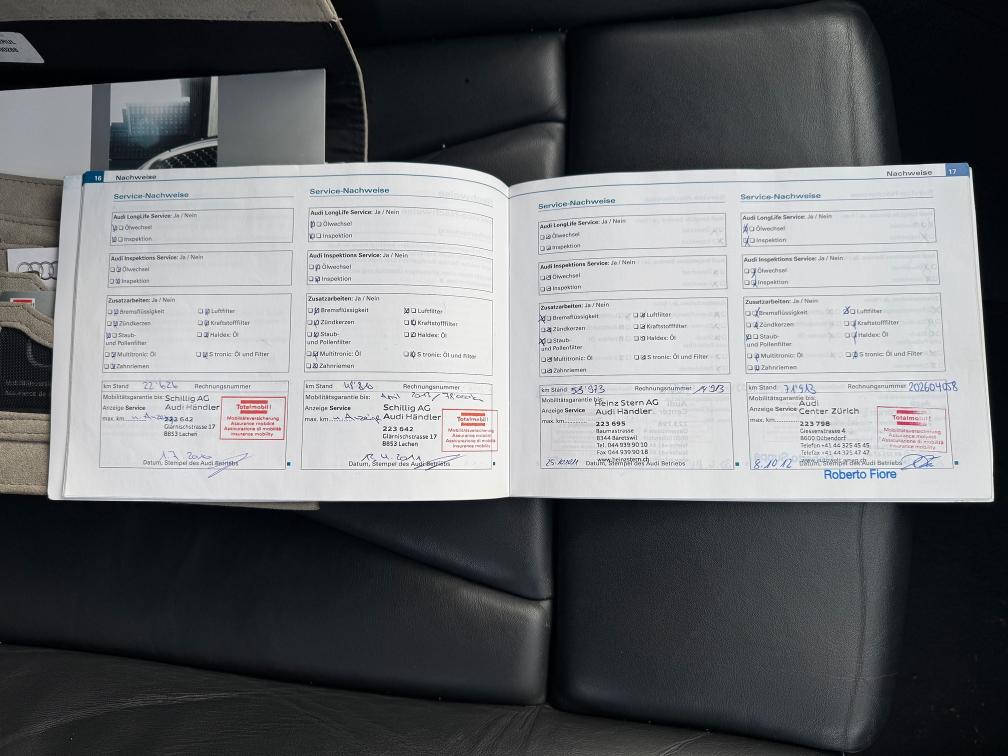 16 Nachweise
Service-Nachweise
Audi LongLife Service: Ja / Nein
Ölwechsel
Inspektion
Audi Inspektions Service: Ja / Nein
Ölwechsel
Inspektion
Zusatzarbeiten: Ja / Nein
Bremsflüssigkeit Luftfilter
Zündkerzen Kraftstofffilter
Staub- Haldex: Öl
und Pollenfilter
Multitronic: Öl S tronic: Öl und Filter
Zahnriemen
km Stand 22'626 Rechnungsnummer
Mobilitätsgarantie bis: Schilling AG
Anzeige Service Audi Händler
max. km 223 642
Glärnischstrasse 17
8853 Lachen
Totalmobil!
Mobilitätsversicherung
Assurance mobilité
Assicurazione di mobilità
insurance mobility
Datum, Stempel des Audi Betriebs
Service-Nachweise
Audi LongLife Service: Ja / Nein
Ölwechsel
Inspektion
Audi Inspektions Service: Ja / Nein
Ölwechsel
Inspektion
Zusatzarbeiten: Ja / Nein
Bremsflüssigkeit Luftfilter
Zündkerzen Kraftstofffilter
Staub- Haldex: Öl
und Pollenfilter
Multitronic: Öl S tronic: Öl und Filter
Zahnriemen
km Stand Rechnungsnummer
Mobilitätsgarantie bis: April 2013/
Anzeige Service Schillig AG
max. km Audi Händler
223 642
Glärnischstrasse 17
8853 Lachen
Totalmobil!
Mobilitätsversicherung
Assurance mobilité
Assicurazione di mobilità
insurance mobility
Datum, Stempel des Audi Betriebs
Nachweise 17
Service-Nachweise
Audi LongLife Service: Ja / Nein
Ölwechsel
Inspektion
Audi Inspektions Service: Ja / Nein
Ölwechsel
Inspektion
Zusatzarbeiten: Ja / Nein
Bremsflüssigkeit Luftfilter
Zündkerzen Kraftstofffilter
Staub- Haldex: Öl
und Pollenfilter
Multitronic: Öl S tronic: Öl und Filter
Zahnriemen
km Stand Rechnungsnummer
Mobilitätsgarantie bis: Heinz Stern AG
Anzeige Service Audi Händler
max. km 223 695
Baumastrasse
8344 Bäretswil
Tel. 044 939 90 10
Fax 044 939 90 18
www.heinzstern.ch
Datum, Stempel des Audi Betriebs
Service-Nachweise
Audi LongLife Service: Ja / Nein
Ölwechsel
Inspektion
Audi Inspektions Service: Ja / Nein
Ölwechsel
Inspektion
Zusatzarbeiten: Ja / Nein
Bremsflüssigkeit Luftfilter
Zündkerzen Kraftstofffilter
Staub- Haldex: Öl
und Pollenfilter
Multitronic: Öl S tronic: Öl und Filter
Zahnriemen
km Stand 71'913 Rechnungsnummer 202604058
Mobilitätsgarantie bis: Audi
Anzeige Service Center Zürich
max. km 223 798
Giessenstrasse 4
8600 Dübendorf
Telefon +41 44 325 45 45
Telefax +41 44 325 47 47
Totalmobil!
Mobilitätsversicherung
Assurance mobilité
Assicurazione di mobilità
insurance mobility
8.10.12 Datum, Stempel des Audi Betriebs
Roberto Fiore